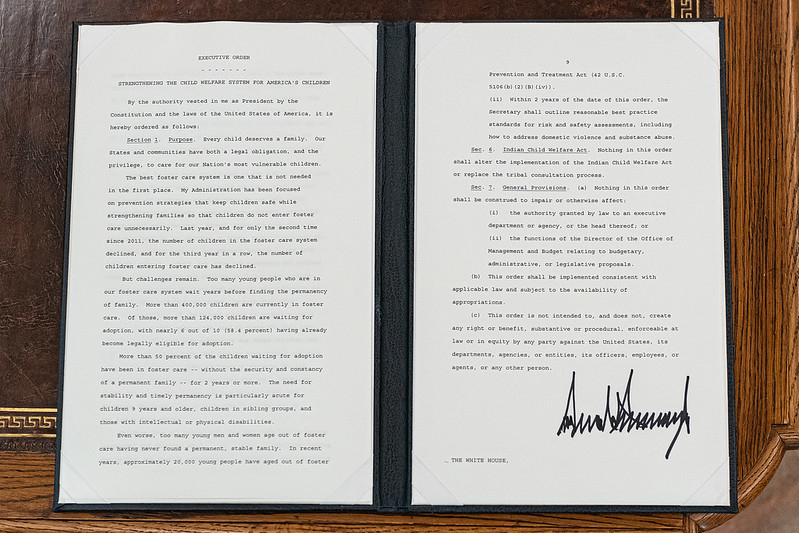 EXECUTIVE ORDER
- - - - - - -
STRENGTHENING THE CHILD WELFARE SYSTEM FOR AMERICA'S CHILDREN
By the authority vested in me as President by the
Constitution and the laws of the United States of America, it is
hereby ordered as follows:
Section 1. Purpose. Every child deserves a family. Our
States and communities have both a legal obligation, and the
privilege, to care for our Nation's most vulnerable children.
The best foster care system is one that is not needed
in the first place. My Administration has been focused
on prevention strategies that keep children safe while
strengthening families so that children do not enter foster
care unnecessarily. Last year, and for only the second time
since 2011, the number of children in the foster care system
declined, and for the third year in a row, the number of
children entering foster care has declined.
But challenges remain. Too many young people who are in
our foster care system wait years before finding the permanency
of family. More than 400,000 children are currently in foster
care. Of those, more than 124,000 children are waiting for
adoption, with nearly 6 out of 10 (58.4 percent) having already
become legally eligible for adoption.
More than 50 percent of the children waiting for adoption
have been in foster care -- without the security and constancy
of a permanent family -- for 2 years or more. The need for
stability and timely permanency is particularly acute for
children 9 years and older, children in sibling groups, and
those with intellectual or physical disabilities.
Even worse, too many young men and women age out of foster
care having never found a permanent, stable family. In recent
years, approximately 20,000 young people have aged out of foster
9
Prevention and Treatment Act (42 U.S.C.
5106(b)(2)(B)(iv)).
(ii) Within 2 years of the date of this order, the
Secretary shall outline reasonable best practice
standards for risk and safety assessments, including
how to address domestic violence and substance abuse.
Sec. 6. Indian Child Welfare Act. Nothing in this order
shall alter the implementation of the Indian Child Welfare Act
or replace the tribal consultation process.
Sec. 7. General Provisions. (a) Nothing in this order
shall be construed to impair or otherwise affect:
(i) the authority granted by law to an executive
department or agency, or the head thereof; or
(ii) the functions of the Director of the Office of
Management and Budget relating to budgetary,
administrative, or legislative proposals.
(b) This order shall be implemented consistent with
applicable law and subject to the availability of
appropriations.
(c) This order is not intended to, and does not, create
any right or benefit, substantive or procedural, enforceable at
law or in equity by any party against the United States, its
departments, agencies, or entities, its officers, employees, or
agents, or any other person.
THE WHITE HOUSE,